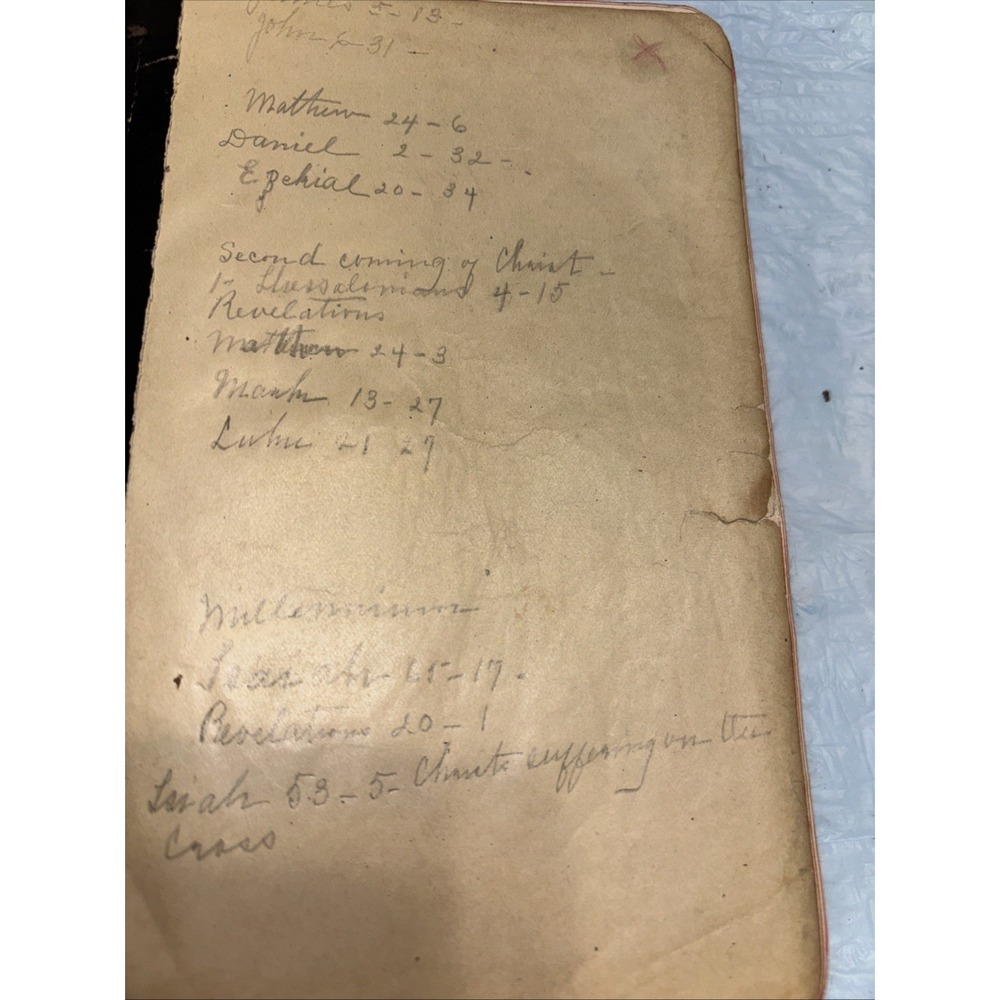 James 5-13-
John 6-31-
Mathew 24-6
Daniel 2-32-
Ezekial 20-34
Second coming of Christ-
1- Thessalonians 4-15
Revelations
Mathew 24-3
Mark 13-27
Luke 21 27
Millennium
Isaiah 65-17-
Revelations 20-1
Isiah 53-5- Christs suffering on the
Cross